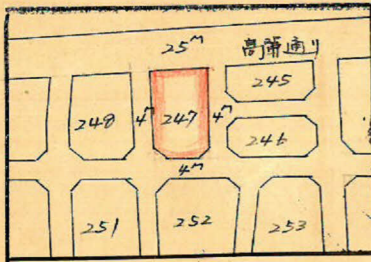 25m
高浦通り
245
248
4m
247
4m
246
4m
251
252
253